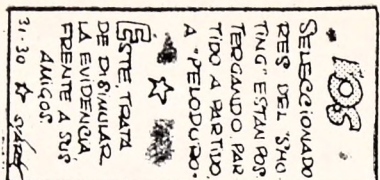 LOS
SELECCIONADO
RES DEL "SHO
TING" ESTAN POS
TERGANDO, PAR
TIDO A PARTIDO,
A "PELODURO".
ESTE, TRATA
DE DISIMULAR
LA EVIDENCIA
FRENTE A SUS
AMIGOS.
31-30